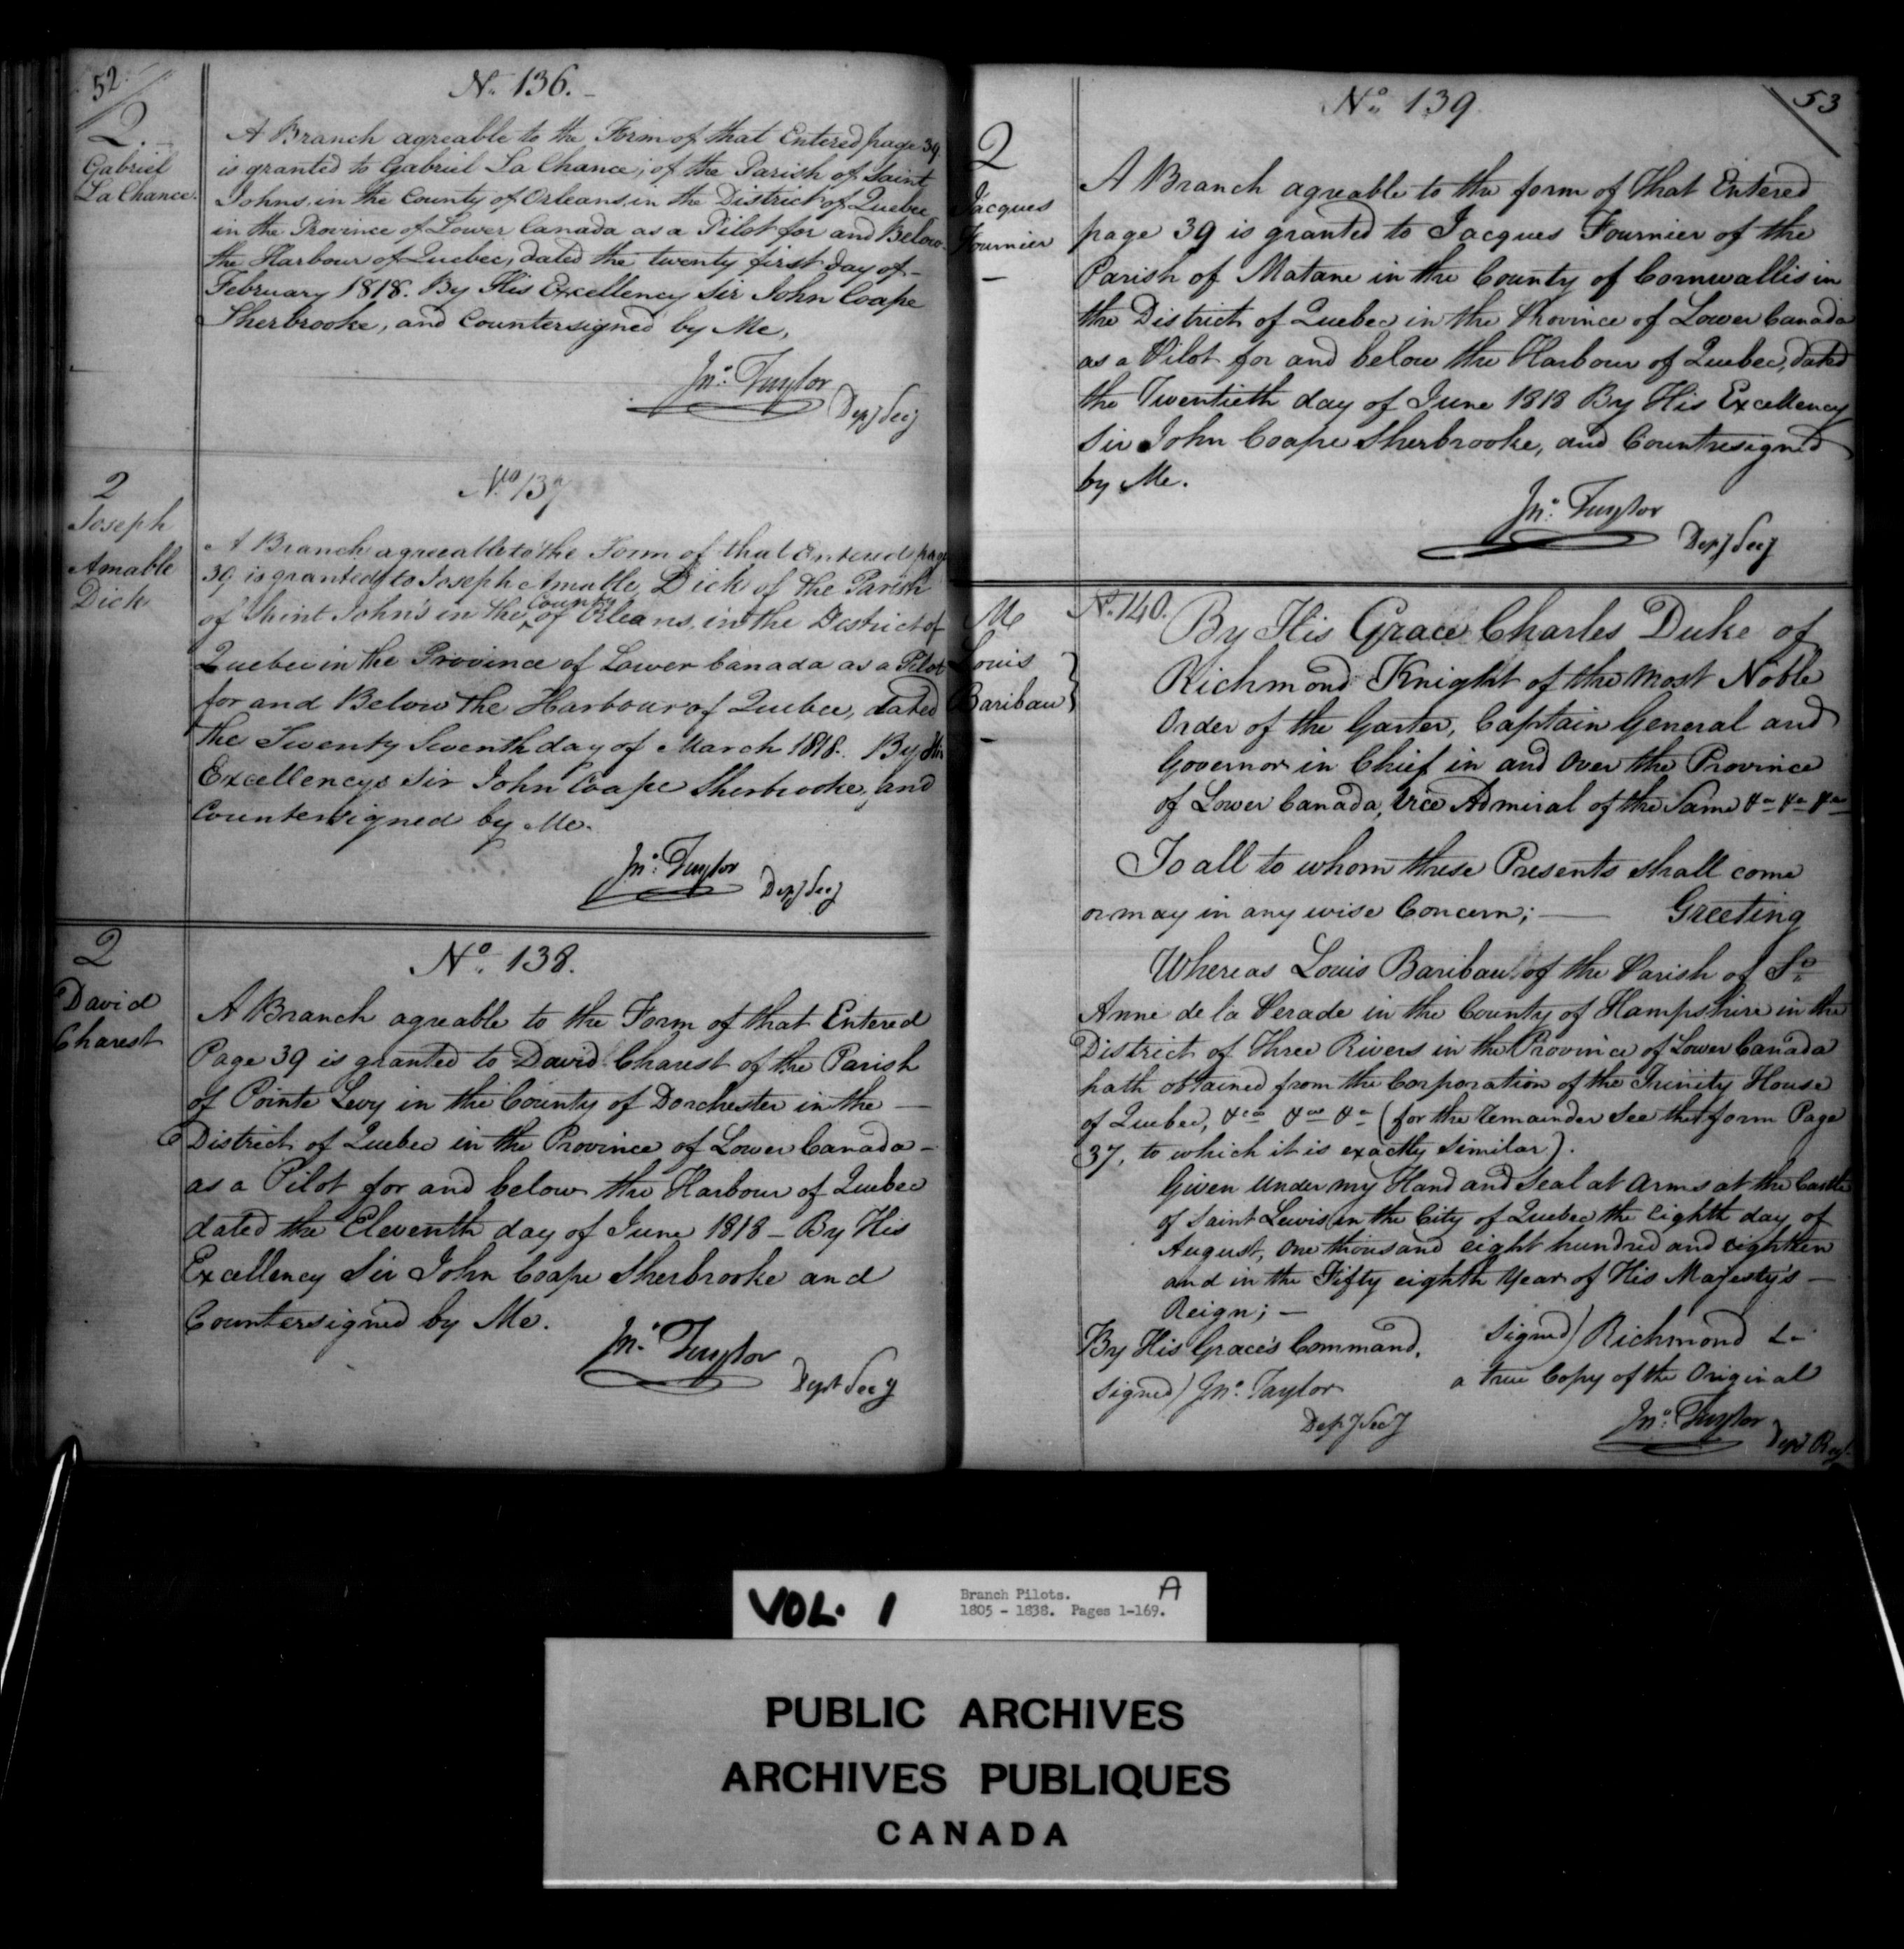 52
No. 136.
2.
Gabriel
La Chance.
A Branch agreable to the Form of that Entered page 39
is granted to Gabriel La Chance, of the Parish of Saint
Johns, in the County of Orleans, in the District of Quebec
in the Province of Lower Canada as a Pilot for and Below
the Harbour of Quebec, dated the twenty first day of -
February 1818. By His Excellency Sir John Coape
Sherbrooke, and Countersigned by Me,
Jno. Taylor
Depy Secy
2
Joseph
Amable
Dick
No. 137
A Branch agreeable to the Form of that Entered page
39 is granted to Joseph Amable Dick of the Parish
of Saint John's in the County of Orleans, in the District of
Quebec in the Province of Lower Canada as a Pilot
for and Below the Harbour of Quebec, dated
the Twenty Seventh day of March 1818. By His
Excellencys Sir John Coape Sherbrooke, and
Countersigned by Me.
Jno. Taylor
Depy Secy
2
David
Charest
No. 138.
A Branch agreable to the Form of that Entered
Page 39 is granted to David Charest of the Parish
of Pointe Levy in the County of Dorchester in the —
District of Quebec in the Province of Lower Canada -
as a Pilot for and below the Harbour of Quebec
dated the Eleventh day of June 1818 - By His
Excellency Sir John Coape Sherbrooke and
Countersigned by Me.
Jno. Taylor
Dept Secy
53
No. 139
2
Jacques
Fournier
—
A Branch agreable to the form of that Entered
page 39 is granted to Jacques Fournier of the
Parish of Matane in the County of Cornwallis in
the District of Quebec in the Province of Lower Canada
as a Pilot for and below the Harbour of Quebec, dated
the Twentieth day of June 1818 By His Excellency
Sir John Coape Sherbrooke, and Countresigned
by Me.
Jno. Taylor
Depy Secy
Me
Louis
Baribau }
—
No. 140.
By His Grace Charles Duke of
Richmond Knight of the most Noble
Order of the Garter, Captain General and
Governor in Chief in and Over the Province
of Lower Canada, Vice Admiral of the Same &a &a &a
To all to whom these Presents shall come
or may in any wise Concern; — Greeting
Whereas Louis Baribau of the Parish of St.
Anne de la Perade in the County of Hampshire in the
District of Three Rivers in the Province of Lower Canada
hath obtained from the Corporation of the Trinity House
of Quebec, &ca &ca &a (for the remainder see the form Page
37, to which it is exactly similar).
Given Under my Hand and Seal at Arms at the Castle
of Saint Lewis in the City of Quebec the Eighth day of
August, One thousand eight hundred and eighteen
and in the Fifty eighth Year of His Majesty's —
Reign; —
By His Grace's Command.
Signed) Richmond &a
Signed) Jno. Taylor
Depy Secy
a true Copy of the Original
Jno. Taylor
Depy Regr
VOL. 1
Branch Pilots. A
1805 - 1838. Pages 1-169.
PUBLIC ARCHIVES
ARCHIVES PUBLIQUES
CANADA